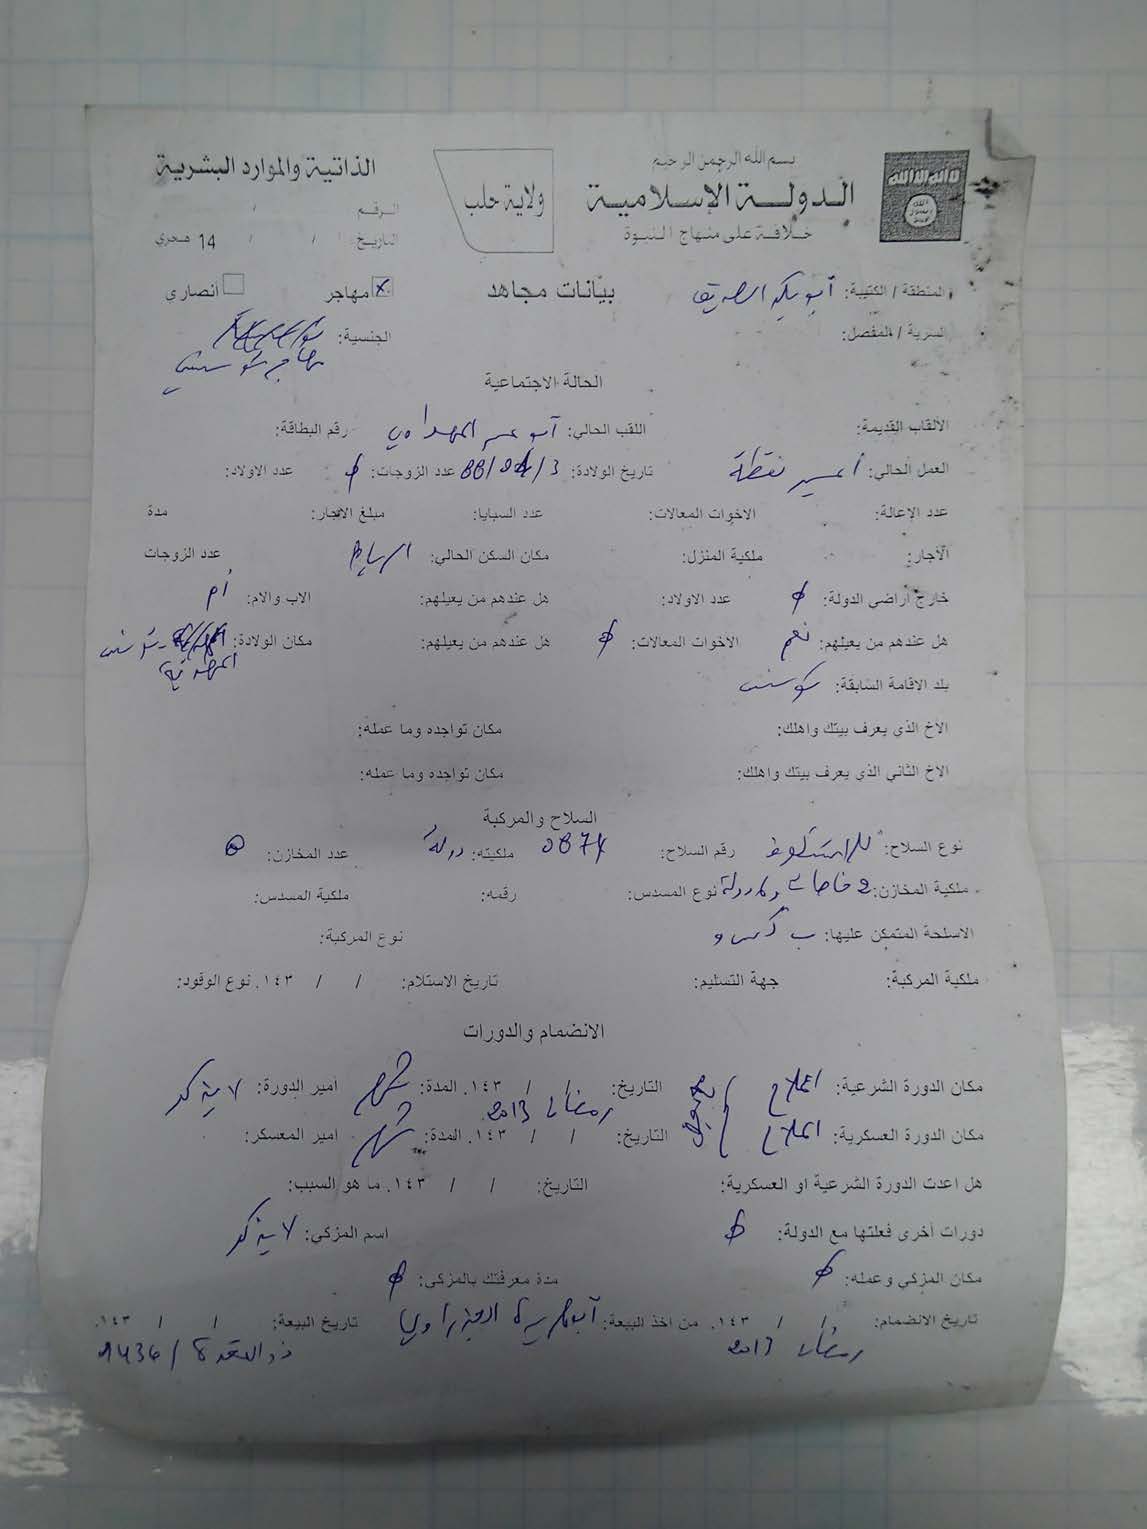 بسم الله الرحمن الرحيم
الدولة الإسلامية
خلافة على منهاج النبوة
ولاية حلب
الذاتية والموارد البشرية
الرقم /
التاريخ: / / 14 هجري
المنطقة / الكتيبة: أبو بكر الصديق
بيانات مجاهد
مهاجر
أنصاري
السرية / المفصل:
الجنسية:
مهاجر تونسي
الحالة الاجتماعية
الألقاب القديمة:
اللقب الحالي: أبو عمر المهداوي
رقم البطاقة:
العمل الحالي: أمير نقطة
تاريخ الولادة:
عدد الزوجات: ϕ
عدد الاولاد:
عدد الإعالة:
الاخوات المعالات:
عدد السبايا:
مبلغ الايجار:
مدة
الآجار:
ملكية المنزل:
مكان السكن الحالي: الرباط
عدد الزوجات
خارج أراضي الدولة: ϕ
عدد الاولاد:
هل عندهم من يعيلهم:
الاب والام: أم
هل عندهم من يعيلهم: نعم
الاخوات المعالات: ϕ
هل عندهم من يعيلهم:
مكان الولادة: تونس
المهدية
بلد الاقامة السابقة: تونس
الاخ الذي يعرف بيتك واهلك:
مكان تواجده وما عمله:
الاخ الثاني الذي يعرف بيتك واهلك:
مكان تواجده وما عمله:
السلاح والمركبة
نوع السلاح:
رقم السلاح:
ملكيته: دولة
عدد المخازن:
ملكية المخازن:
نوع المسدس:
رقمه:
ملكية المسدس:
الاسلحة المتمكن عليها:
نوع المركبة:
ملكية المركبة:
جهة التسليم:
تاريخ الاستلام: / / ١٤٣.
نوع الوقود:
الانضمام والدورات
مكان الدورة الشرعية:
التاريخ: / / ١٤٣.
المدة: شهر
امير الدورة: لا يذكر
رمضان 2013
مكان الدورة العسكرية:
التاريخ: / / ١٤٣.
المدة: شهر
امير المعسكر:
هل اعدت الدورة الشرعية او العسكرية:
التاريخ: / / ١٤٣.
ما هو السبب:
دورات أخرى فعلتها مع الدولة: ϕ
اسم المزكي: لا يذكر
مكان المزكي وعمله: ϕ
مدة معرفتك بالمزكي: ϕ
تاريخ الانضمام: / / ١٤٣.
من اخذ البيعة:
تاريخ البيعة: / / ١٤٣.
رمضان 2013
ذو القعدة / 1436